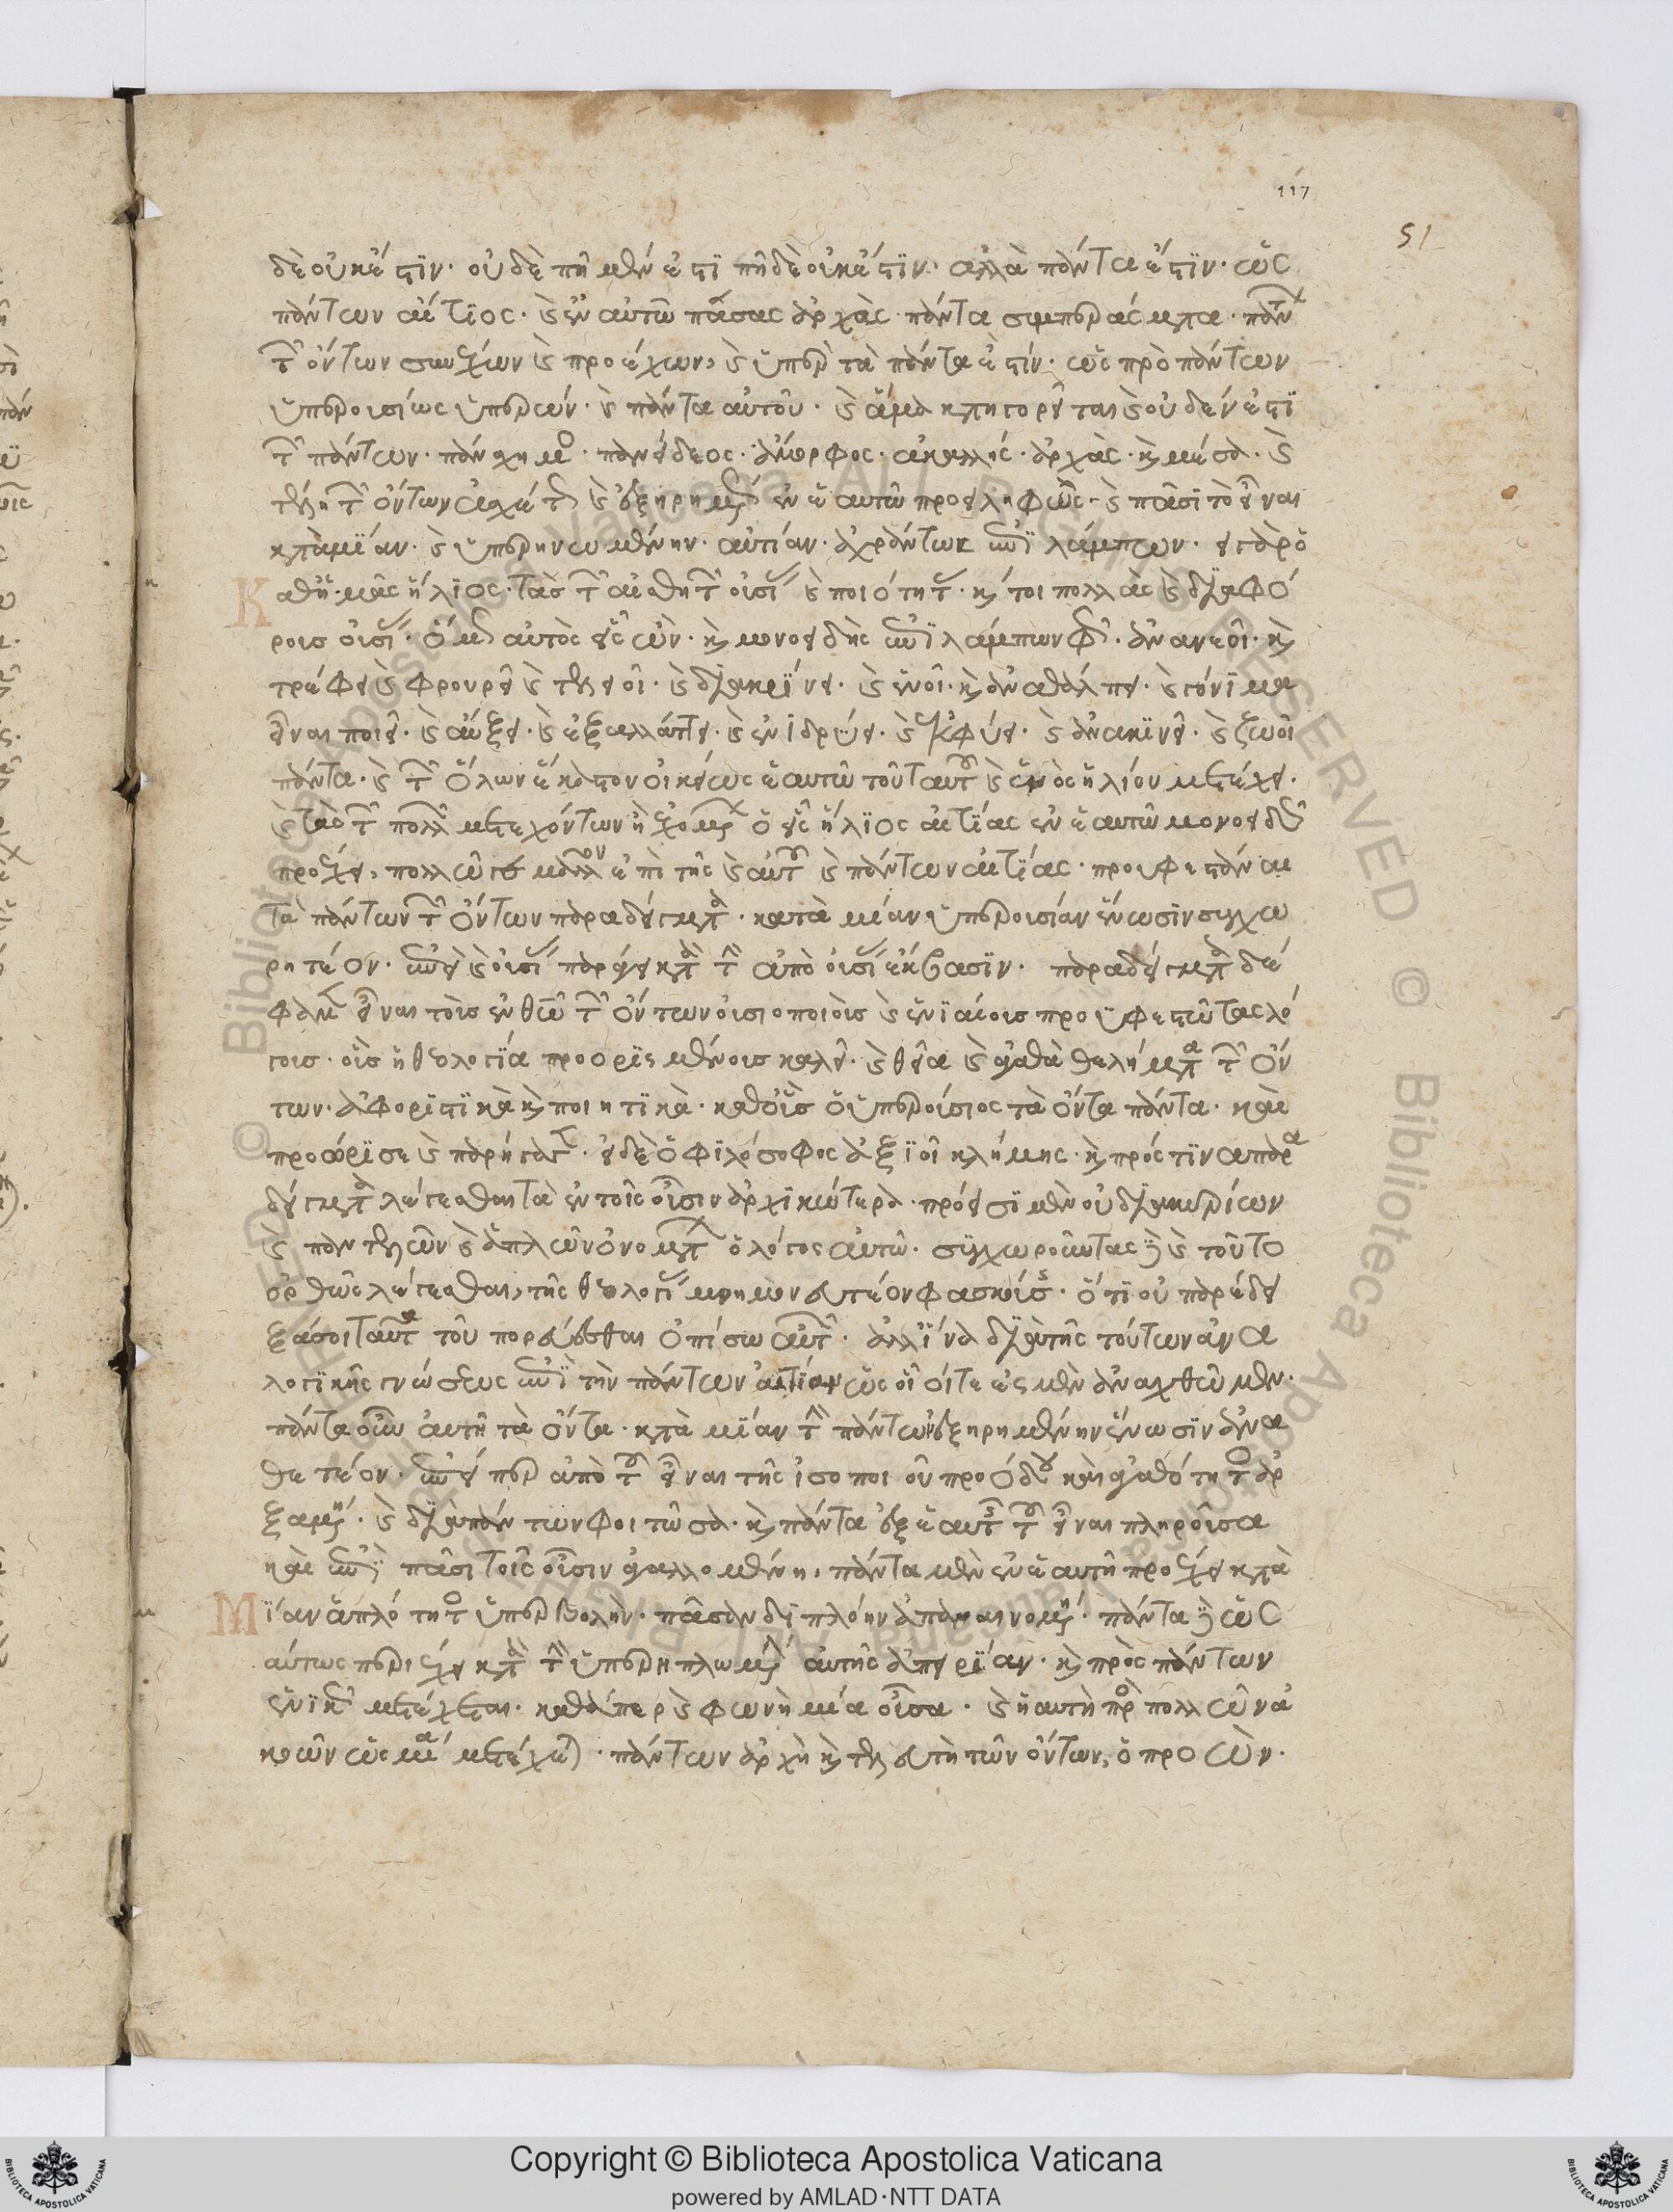 117
51
δὲ οὐκ ἔστιν· οὐδὲ πῆ μὲν ἐστὶ πῆ δὲ οὐκ ἔστιν· ἀλλὰ πάντα ἐστιν· ὡς
πάντων αἴτιος· καὶ ἐν αὐτῶ πάσας ἀρχὰς πάντα συμπεράσματα· πάντ
τῶν ὄντων συνέχων καὶ προέχων, καὶ ὑπὲρ τὰ πάντα ἐστίν· ὡς πρὸ πάντων
ὑπερουσίως ὑπερών· καὶ πάντα αὐτοῦ· καὶ ἅμα κατηγορεῖται καὶ οὐδέν ἐστι
τῶν πάντων· πάνσχημος· πανείδεος· ἄμορφος· ἀκαλλής· ἀρχὰς· καὶ μέσα· καὶ
τέλη τῶν ὄντων ἀσχέτως καὶ ἐξηρημένως ἐν ἑαυτῶ προειληφὼς· καὶ πᾶσι τὸ εἶναι
κατὰ μίαν· καὶ ὑπερηνωμένην· αἰτίαν· ἀχράντως ἐπιλάμπων· εἰ γὰρ ὁ
Καθ' ἡμᾶς ἥλιος· τὰς τῶν αἰσθητῶν οὐσίας καὶ ποιότητας· καίτοι πολλὰς καὶ διαφό
ροις οὔσας· ὅμως αὐτὸς εἷς ὢν· καὶ μονοειδὴς ἐπιλάμπων φῶς· ἀνανεοῖ· καὶ
τρέφει καὶ φρουρεῖ καὶ τελειοῖ· καὶ διακρίνει· καὶ ἑνοῖ· καὶ ἀναθάλπει· καὶ γόνιμα
εἶναι ποιεῖ· καὶ αὔξει· καὶ ἐξαλλάττει· καὶ ἐνιδρύει· καὶ ἐκφύει· καὶ ἀνακινεῖ· καὶ ζωοῖ
πάντα· καὶ τῶν ὅλων ἕκαστον οἰκείως ἑαυτῶ τοῦ ταυτοῦ καὶ ἑνὸς ἡλίου μετέχει·
καὶ τὰς τῶν πολλῶν μετεχόντων ὁ εἷς ἥλιος αἰτίας ἐν ἑαυτῶ μονοειδῶς
προέχει, πολλῶ γε μᾶλλον ἐπὶ τῆς καὶ αὐτοῦ καὶ πάντων αἰτίας· προϋφεστάναι
τὰ πάντων τῶν ὄντων παραδείγματα· κατὰ μίαν ὑπερούσιαν ἕνωσιν συγχω
ρητέον· ἐπεὶ καὶ οὐσίας παράγει κατὰ τὴν ἀπὸ οὐσίας ἔκβασιν· παραδείγματα δέ
φαμεν εἶναι τοὺς ἐν θεῶ τῶν ὄντων οὐσιοποιοὺς καὶ ἑνιαίοις προϋφεστῶτας λό
γοις· οὓς ἡ θεολογία προορισμένοις καλεῖ· καὶ θεῖα καὶ ἀγαθὰ θελήματα τῶν ὄν
των· ἀφοριστικὰ καὶ ποιητικὰ· καθ' οὓς ὁ ὑπερούσιος τὰ ὄντα πάντα· καὶ
προώρισε καὶ παρήγαγεν· εἰ δὲ ὁ φιλόσοφος ἀξιοῖ κλήμης· καὶ πρός τινα παρα
δείγματα λέγεσθαι τὰ ἐν τοῖς οὖσιν ἀρχικώτερα· πρόεισι μὲν οὐ διὰ κυρίων
καὶ παντελῶν καὶ ἁπλῶν ὀνομάτων ὁ λόγος αὐτῶ· συγχωροῦντας δὲ καὶ τοῦτο
ὀρθῶς λέγεσθαι, τῆς θεολογίας μνημονευτέον φασκούσης· ὅτι οὐ παρέδει
ξά σοι ταῦτα τοῦ πορεύεσθαι ὀπίσω αὐτῶν· ἀλλ' ἵνα διὰ τῆς τούτων ἀνα
λογικῆς γνώσεως ἐπὶ τὴν πάντων αἰτίαν ὡς οἷοί τέ ἐσμεν ἀναχθῶμεν·
πάντα οὖν αὐτῆ τὰ ὄντα· κατὰ μίαν τὴν πάντων ἐξηρημένην ἕνωσιν ἀνα
θετέον· ἐπείπερ ἀπὸ τοῦ εἶναι τῆς οὐσοποιοῦ προόδου καὶ ἀγαθότητος ἀρ
ξαμένη· καὶ διὰ πάντων φοιτῶσα· καὶ πάντα ἐξ ἑαυτῆς τοῦ εἶναι πληροῦσα
καὶ ἐπὶ πᾶσι τοῖς οὖσιν ἀγαλλομένη, πάντα μὲν ἐν ἑαυτῆ προέχει κατὰ
Μίαν ἁπλότητος ὑπερβολὴν· πᾶσαν διπλόην ἀπαναινομένη· πάντα δὲ ὡς
αύτως περιέχει κατὰ τὴν ὑπερηπλωμένην αὐτῆς ἀπειρίαν· καὶ πρὸς πάντων
ἑνικῶς μετέχεται· καθάπερ καὶ φωνὴ μία οὖσα· καὶ ἡ αὐτὴ πρὸς πολλῶν ἀ
κοῶν ὡς μία μετέχεται· πάντων ἀρχὴ καὶ τελευτὴ τῶν ὄντων, ὁ προών·
Copyright © Biblioteca Apostolica Vaticana
powered by AMLAD·NTT DATA